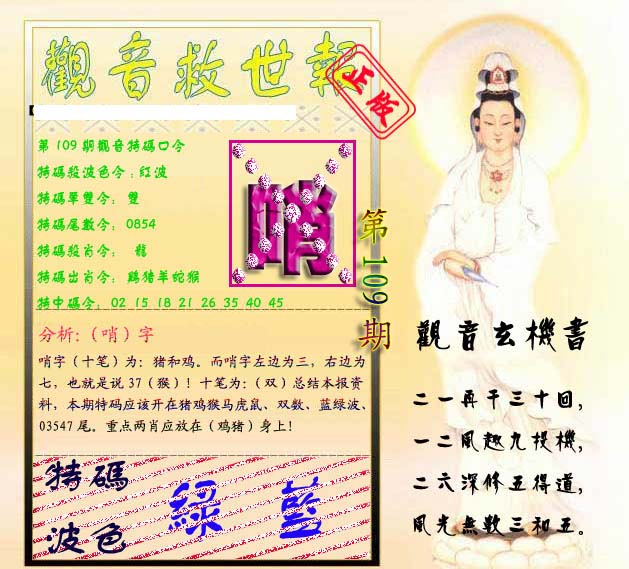 觀音救世報
正版
第109期觀音特碼口令
特碼殺波色令：紅波
特碼單雙令： 雙
特碼尾數令： 0854
特碼殺肖令： 龍
特碼出肖令： 鷄猪羊蛇猴
特中碼令： 02 15 18 21 26 35 40 45
哨
第109期
分析：（哨）字
哨字（十笔）为：猪和鸡。而哨字左边为三，右边为
七，也就是说 37（猴）！十笔为：（双）总结本报资
料，本期特码应该开在猪鸡猴马虎鼠、双数、蓝绿波、
03547 尾。重点两肖应放在（鸡猪）身上！
特碼
波色
綠 藍
觀音玄機書
二一再干三十回，
一二風趣九投機，
二六深修五得道，
風光無數三和五。